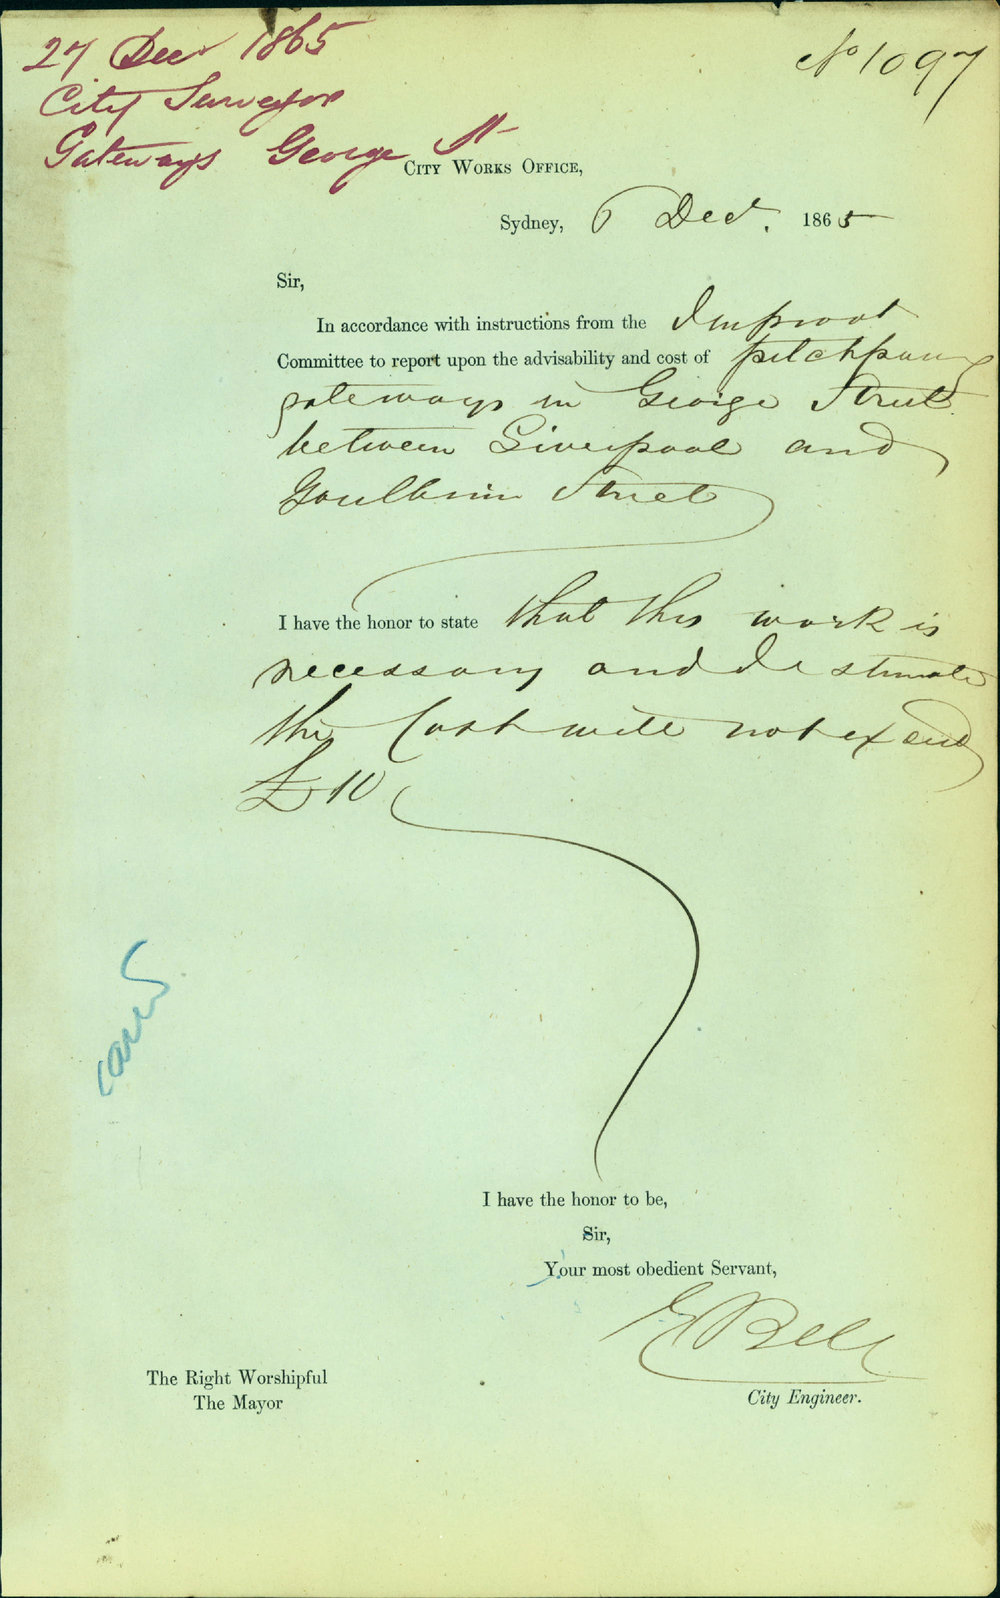 27 Decr 1865
City Surveyor
Gateways George St
No 1097
City Works Office,
Sydney, 6 Decr. 1865
Sir,
In accordance with instructions from the Improvt
Committee to report upon the advisability and cost of pitchpaving
gateways in George Street
between Liverpool and
Goulburn Street
I have the honor to state that this work is
necessary and I estimate
the Cost will not exceed
£10
I have the honor to be,
Sir,
Your most obedient Servant,
E Bell
City Engineer.
The Right Worshipful
The Mayor